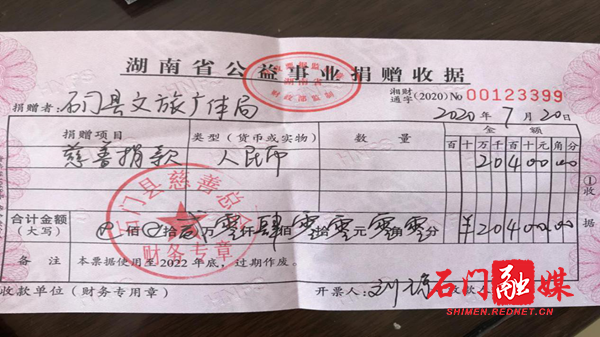 湖南省公益事业捐赠收据
湘财通字(2020) No 00123399
捐赠者:石门县文旅广体局
2020年7月20日
捐赠项目 类型(货币或实物) 数量 金额
百十万千百十元角分
慈善捐款 人民币 2040000
合计金额(大写) 佰 拾贰万零仟肆佰零拾零元零角零分 ¥2040000
备注 本票据使用至2022年底,过期作废。
收款单位(财务专用章) 开票人: 收款人
①收据
石门县慈善总会
财务专用章
财政部监制
石门融媒
SHIMEN.REDNET.CN